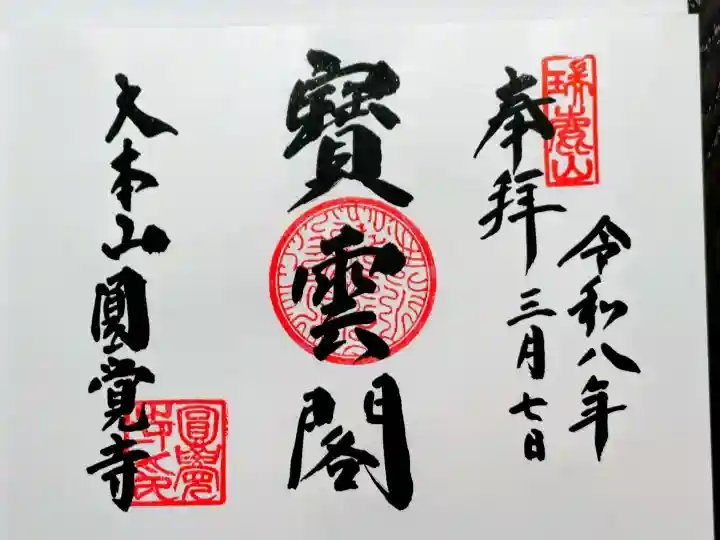 奉拝
瑞鹿山
令和八年
三月七日
寶雲閣
大本山圓覚寺